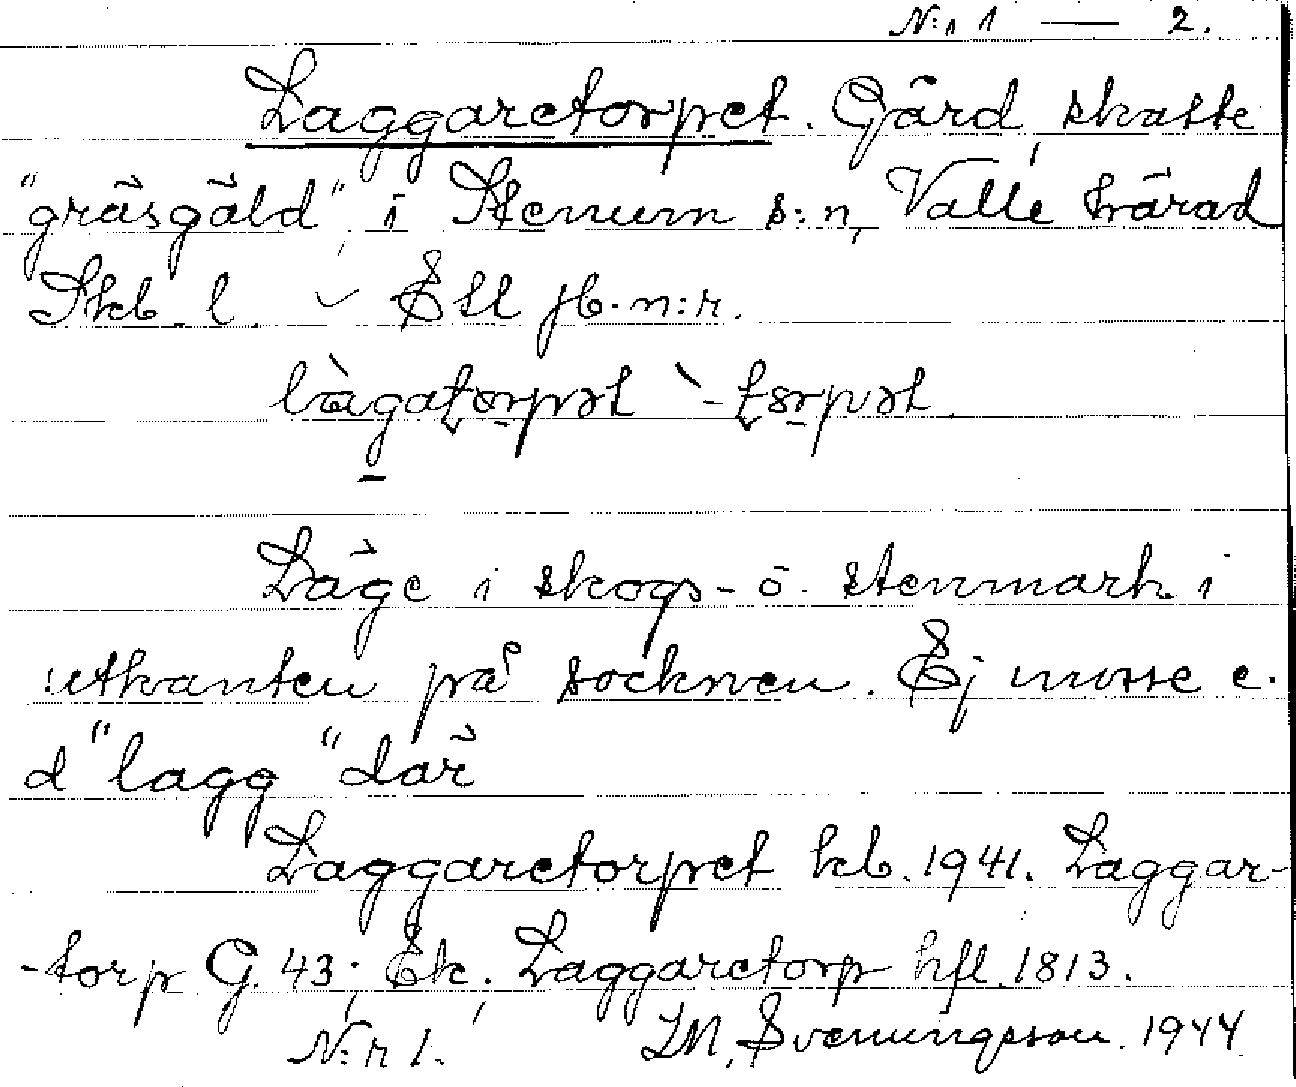 N:r 1 — 2.
Laggaretorpet. Gård, skatte
"gräsgäld", i Stenum s:n, Valle härad
Skb. l. Ett jb. n:r.
làgatorpət `-tsrpət
Läge i skogs- o. stenmark i
utkanten på socknen. Ej mosse e.
d "lagg" där
Laggaretorpet kb. 1941. Laggar-
-torp G. 43; Ek; Laggaretorp hfl. 1813.
N:r 1. I.M. Svenungsson. 1944